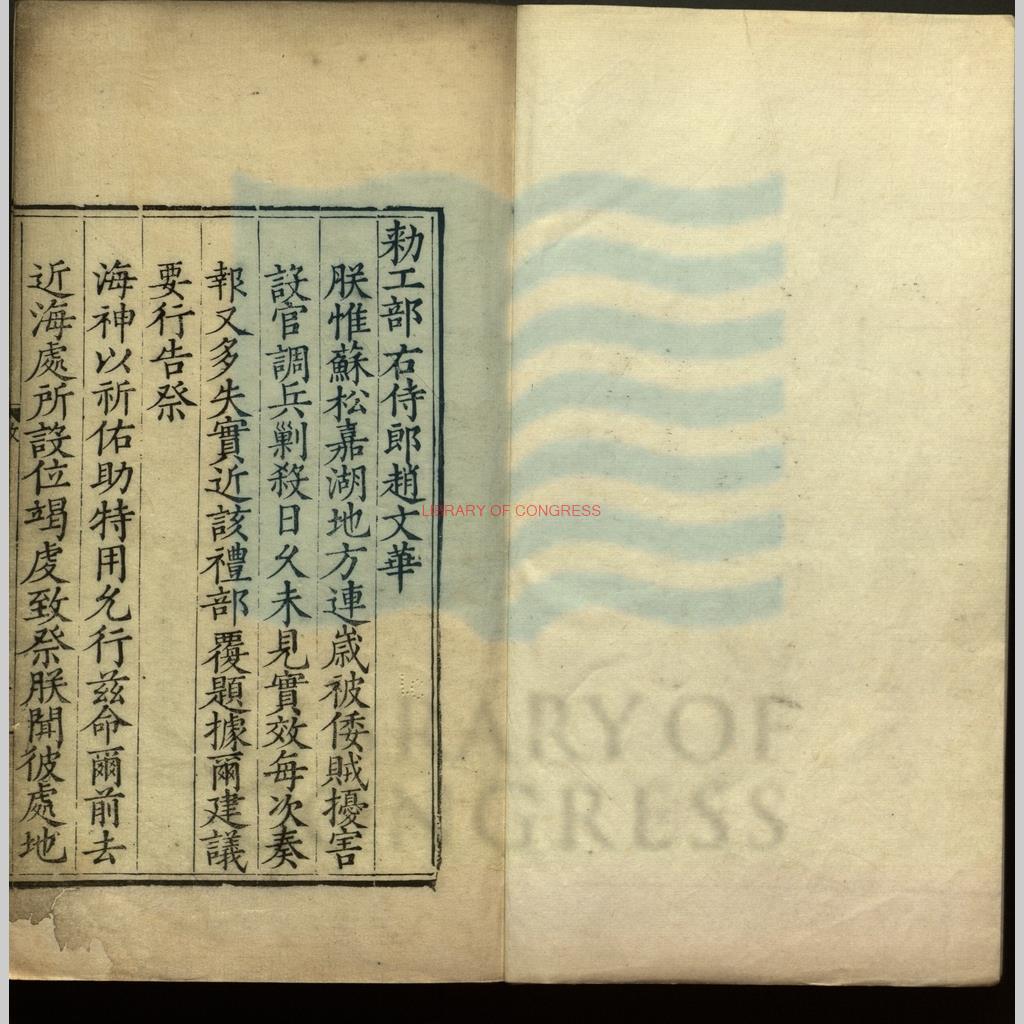 勑工部右侍郎趙文華
朕惟蘇松嘉湖地方連歲被倭賊擾害
設官調兵剿殺日久未見實效每次奏
報又多失實近該禮部覆題據爾建議
要行告祭
海神以祈佑助特用允行兹命爾前去
近海處所設位竭虔致祭朕聞彼處地
LIBRARY OF CONGRESS
LIBRARY OF
CONGRESS